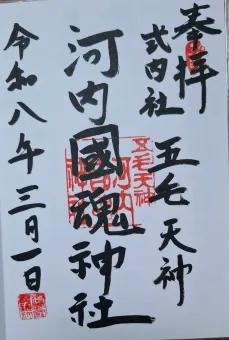 奉拝
式内社 五毛天神
河内國魂神社
令和八年三月一日
五毛天神